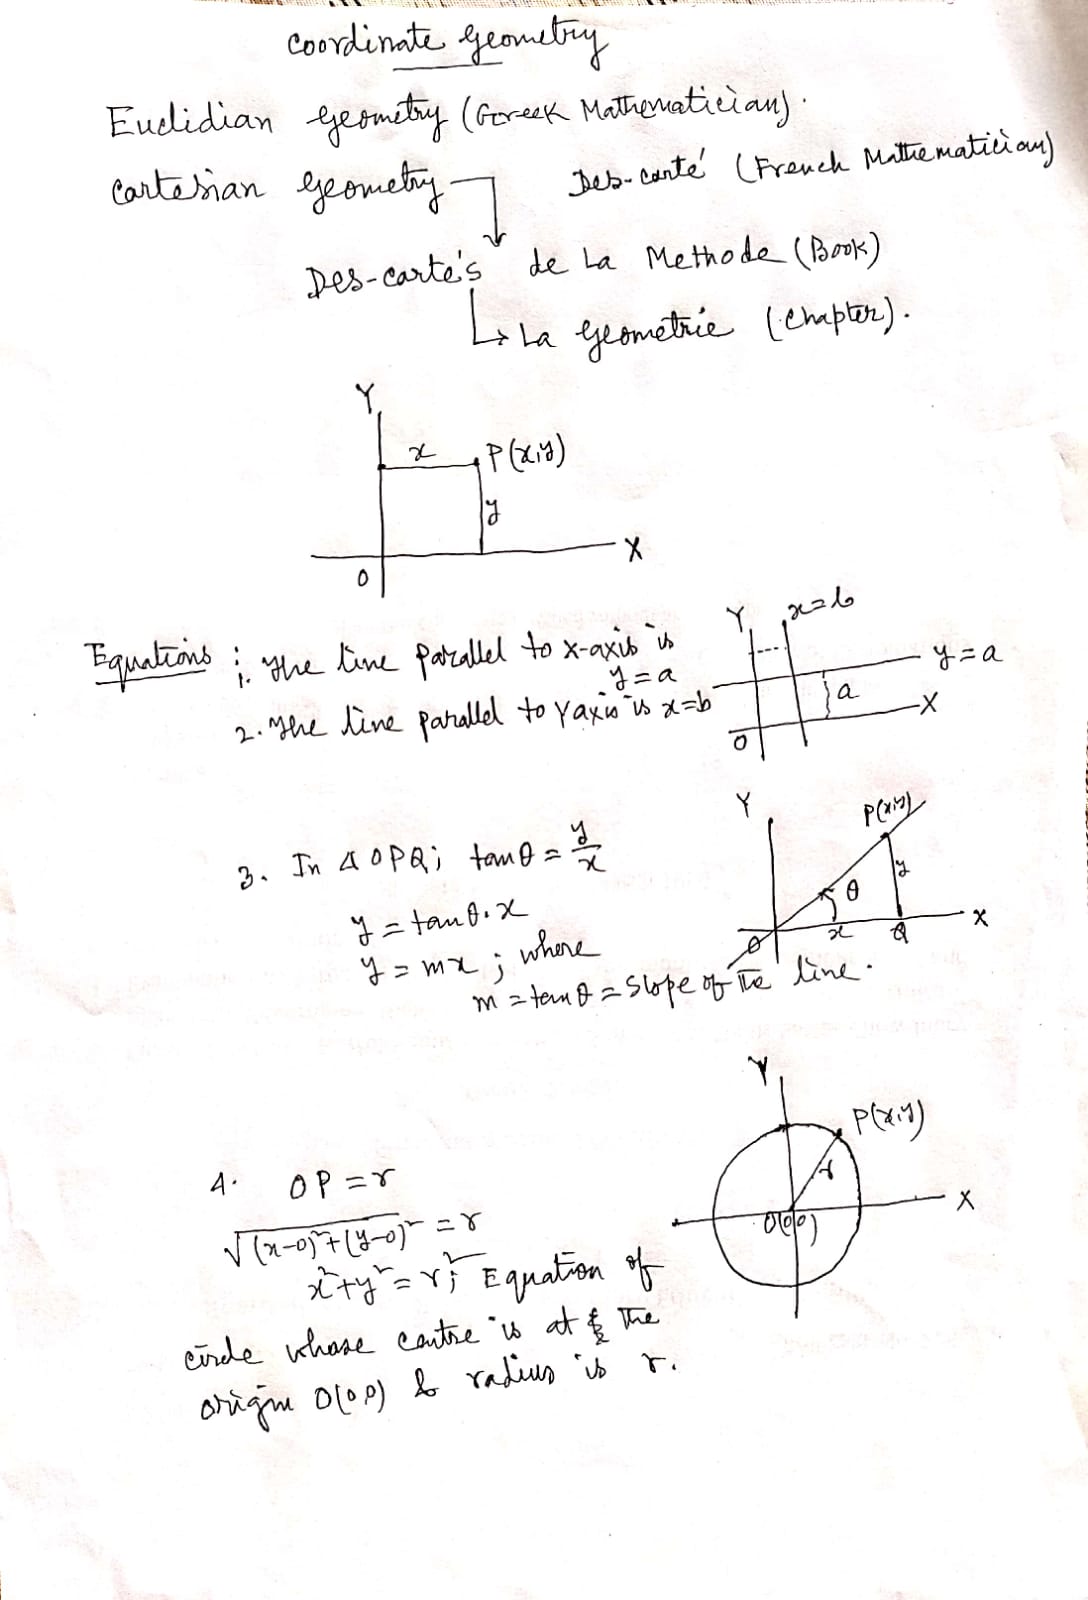 Coordinate Geometry
Euclidian Geometry (Greek Mathematician).
Cartesian Geometry
Des-carté (French Mathematician)
Des-carte's de La Methode (Book)
La Geometrie (Chapter).
Y
x P(x,y)
y
X
O
Equations ; 1. The line parallel to X-axis is
y = a
2. The line parallel to Y axis is x=b
Y x=b
y=a
a
X
O
3. In Δ OPQ; tanθ = y/x
y = tanθ.x
y = mx ; where
m = tanθ = slope of the line.
Y P(x,y)
y
θ
O x Q X
4. OP = r
√(x-0)²+(y-0)² = r
x²+y² = r²; Equation of
circle whose centre is at the
origin O(0,0) & radius is r.
Y
P(x,y)
r
X
O(0,0)